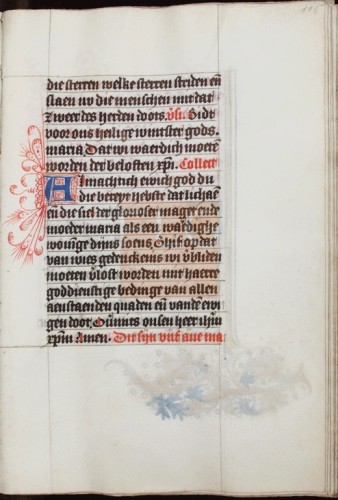 die sterren welke sterren striden en̄
slaen nv die menschen mit dat
zweer des herden doots. Vs̄. Bidt
voor ons heilige winster gods.
maria. Dat wi waerdich moetē
worden der beloften xp̄i. Collect
Almachtich ewich god du
die bereyt hebste dat lichaē
en̄ die siel der glorioser maget ende
moeder maria als een waedighe
woninge dijns soens. Ghif op dat
van wies gedenckenis wi v̄bliden
moeten v̄lost worden mit haere
goddienstige bedinge van allen
aenstaenden quaden en̄ vandē ewi
gen doot. Ouermits onsen heer ihm̄
xp̄m Amen. Dit syn viif aue ma